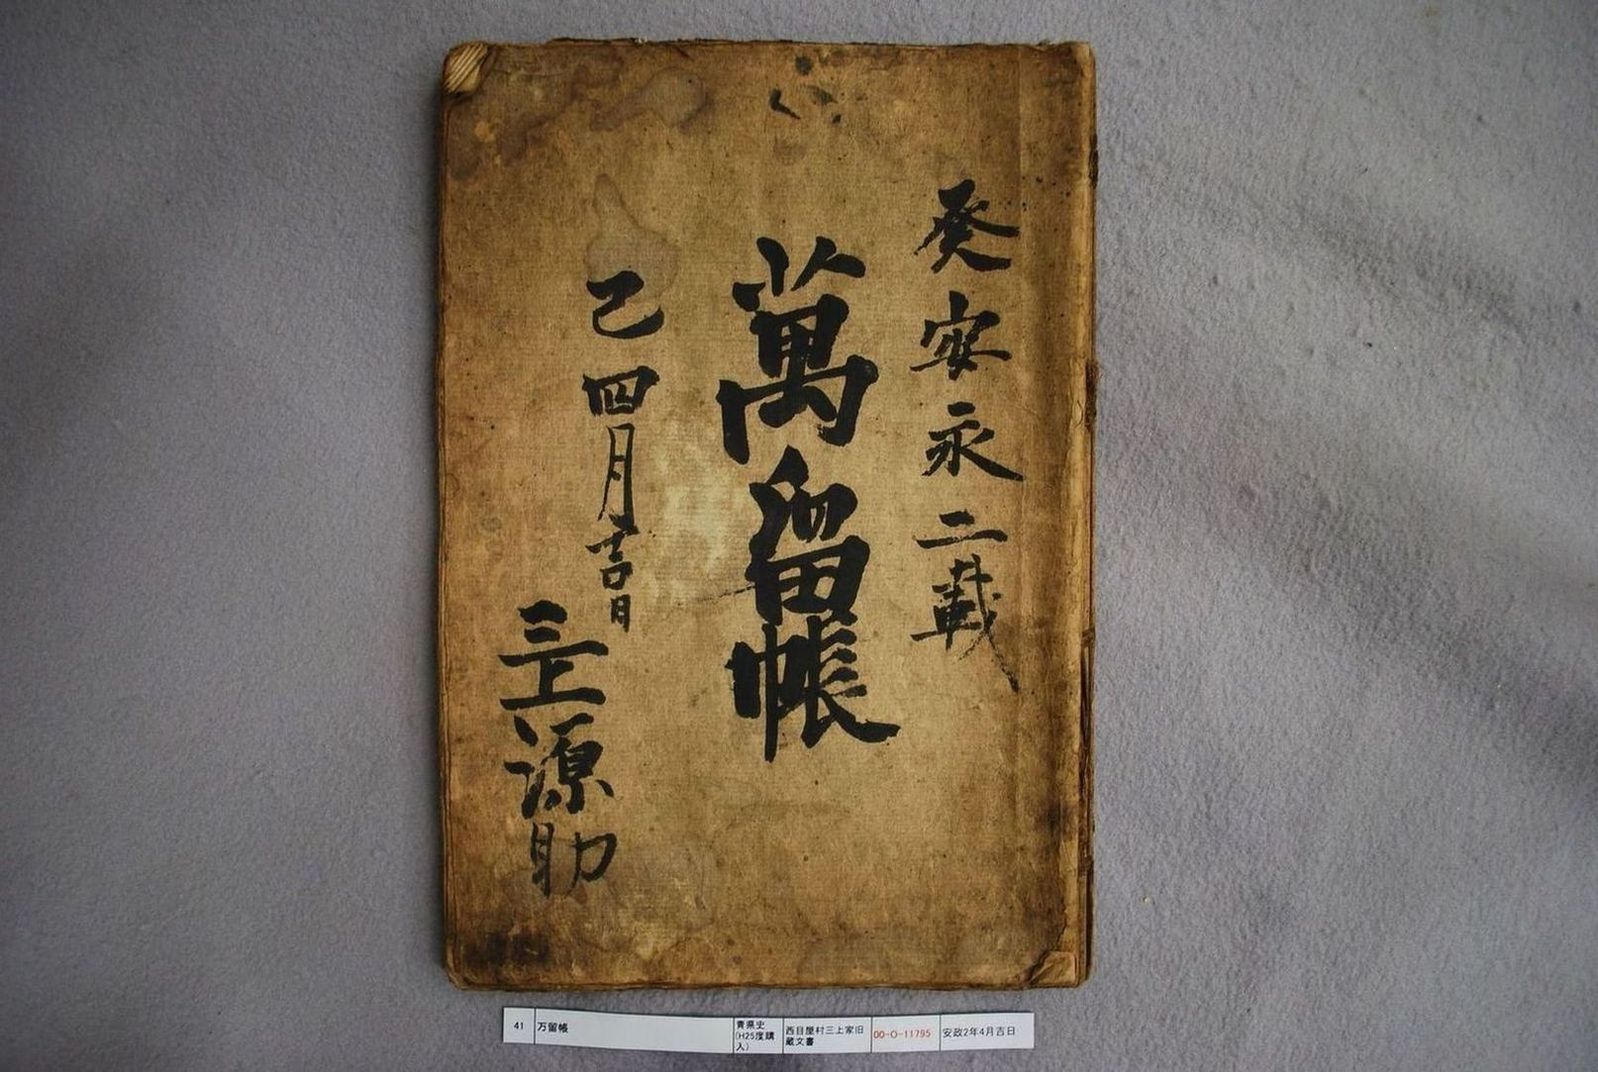 癸安永二載
萬留帳
己四月吉日
三上源助
41 万留帳 青県史(H25度購入) 西目屋村三上家旧蔵文書 00-O-11795 安政2年4月吉日